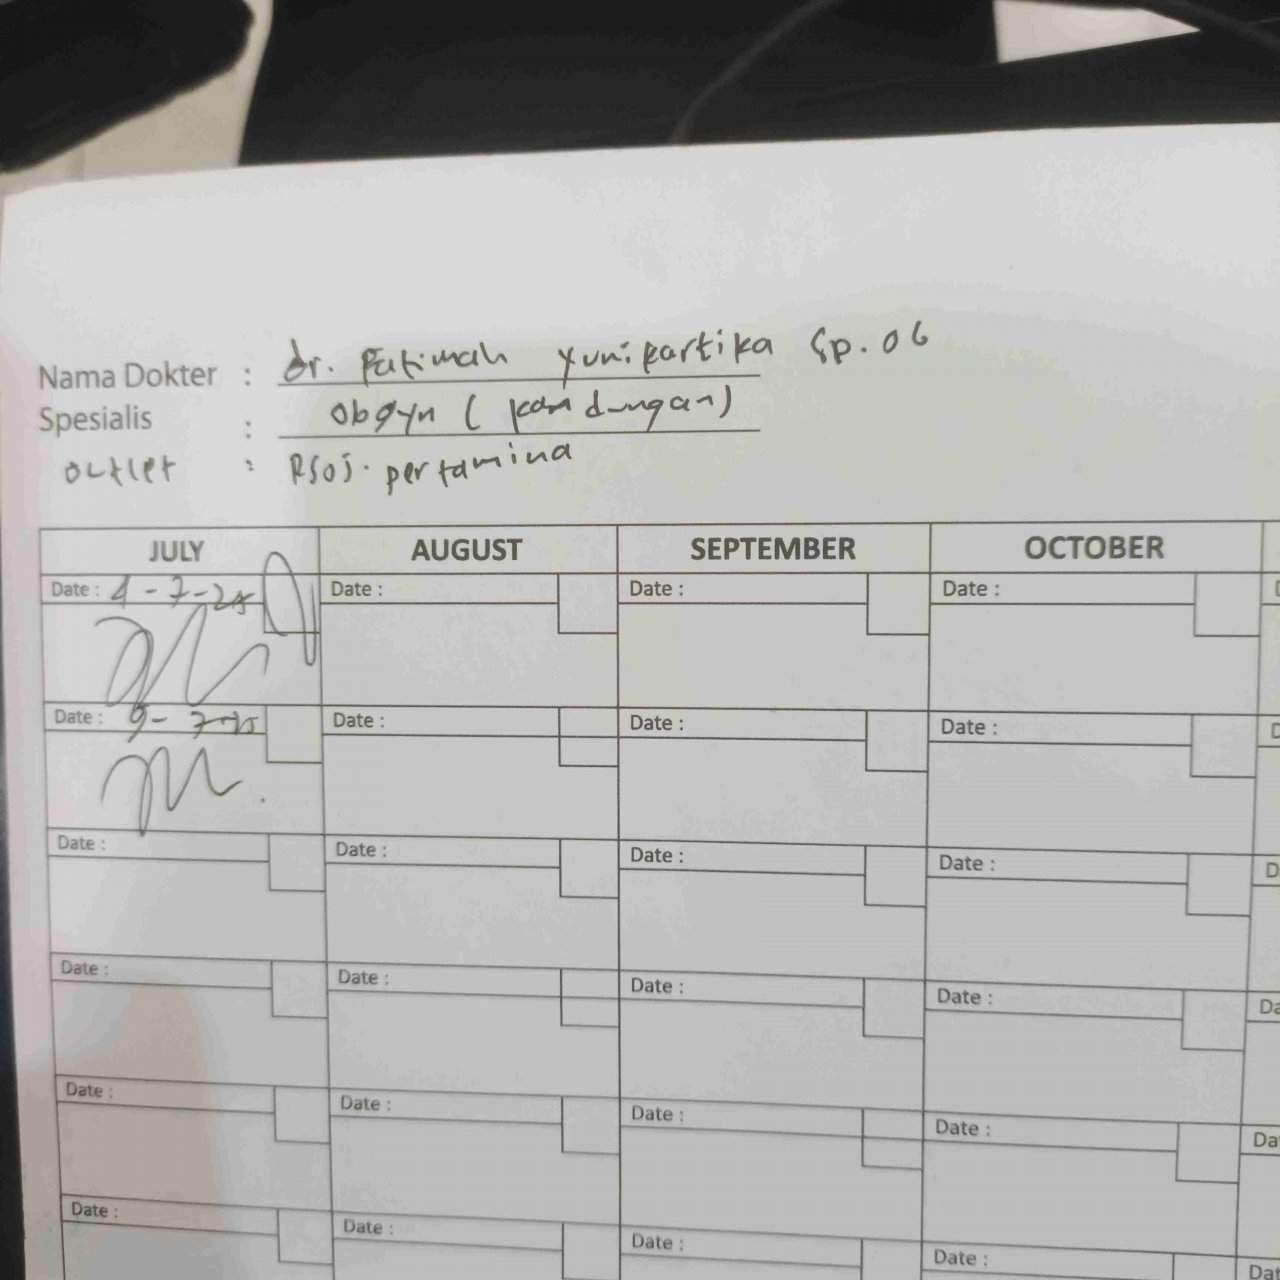 Nama Dokter : dr. Fatimah Yunikartika Sp. OG
Spesialis : Obgyn (kandungan)
Outlet : RSOJ. pertamina
JULY AUGUST SEPTEMBER OCTOBER
Date : 4-7-25 Date : Date : Date :
Date : 9-7-25 Date : Date : Date :
Date : Date : Date : Date :
Date : Date : Date : Date :
Date : Date : Date : Date :
Date : Date : Date : Date :